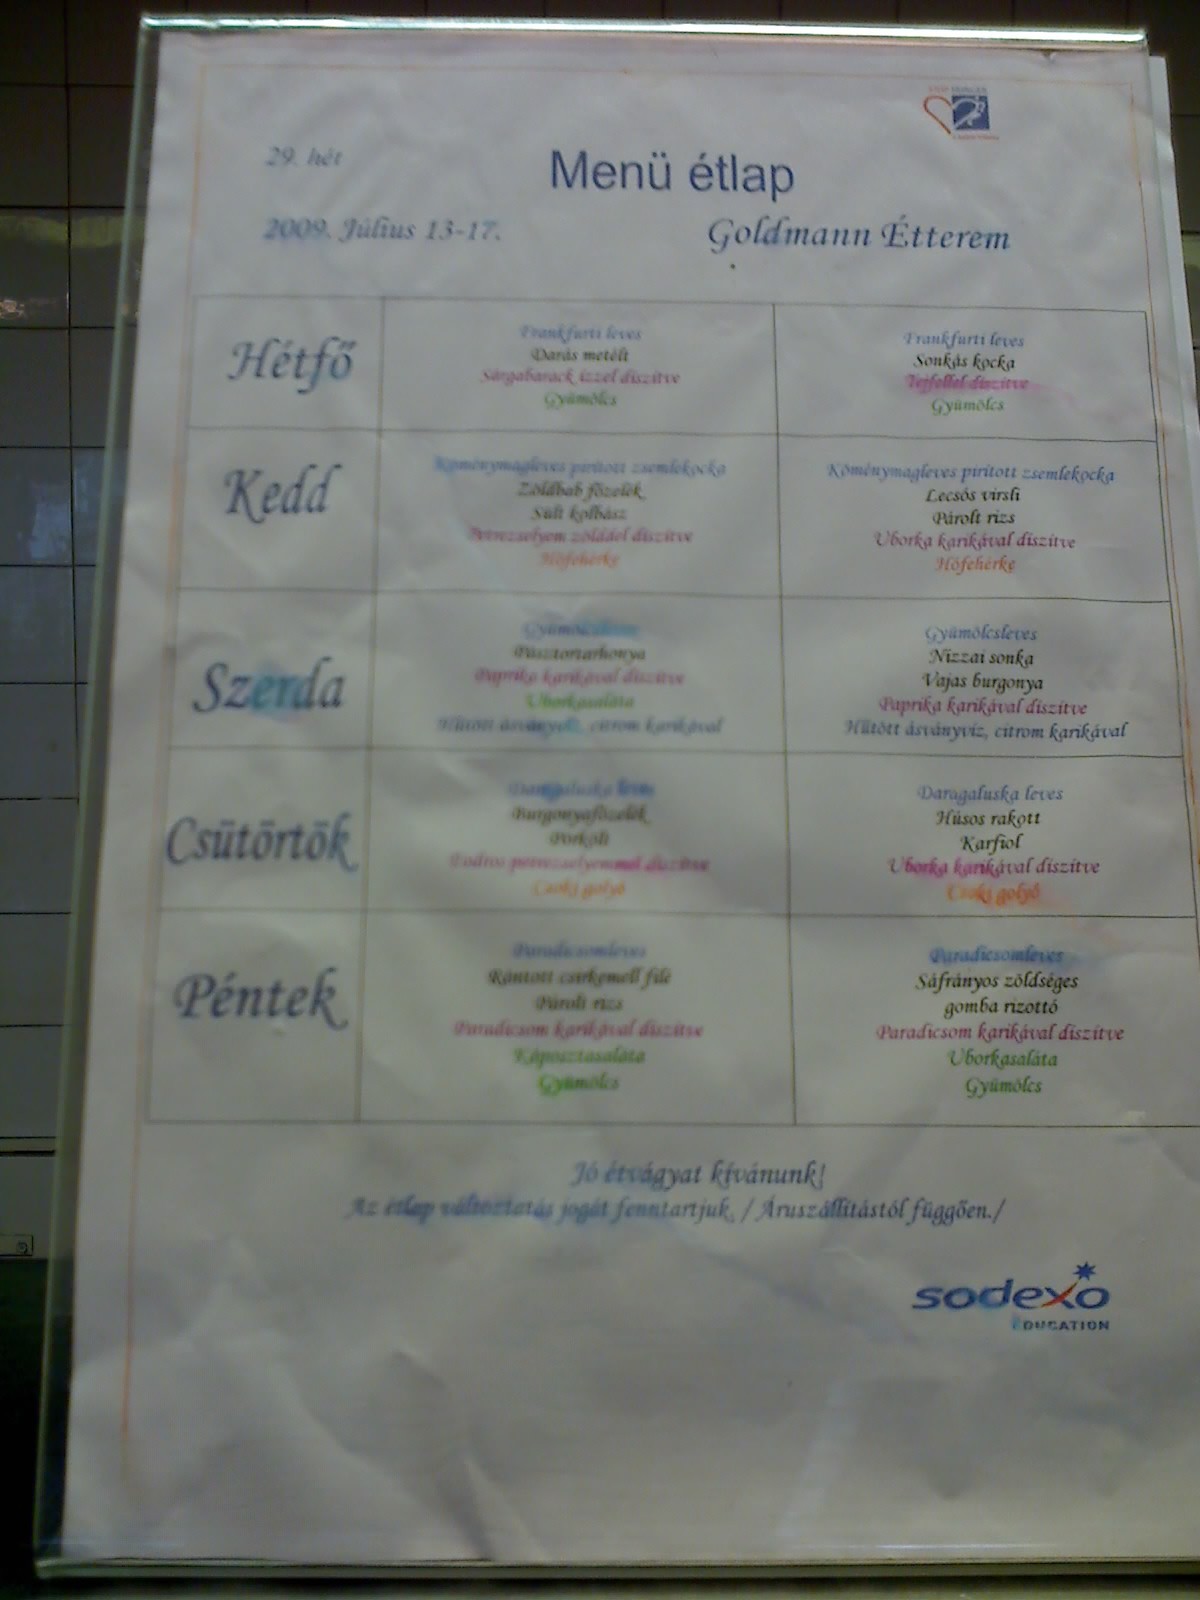 29. hét
Menü étlap
2009. Július 13-17.
Goldmann Étterem
Hétfő
Frankfurti leves
Darás metélt
Sárgabarack ízzel díszítve
Gyümölcs
Frankfurti leves
Sonkás kocka
Tejföllel díszítve
Gyümölcs
Kedd
Köménymagleves pirított zsemlekocka
Zöldbab főzelék
Sült kolbász
Petrezselyem zölddel díszítve
Hófehérke
Köménymagleves pirított zsemlekocka
Lecsós virsli
Párolt rizs
Uborka karikával díszítve
Hófehérke
Szerda
Gyümölcsleves
Pásztortarhonya
Paprika karikával díszítve
Uborkasaláta
Hűtött ásványvíz, citrom karikával
Gyümölcsleves
Nizzai sonka
Vajas burgonya
Paprika karikával díszítve
Hűtött ásványvíz, citrom karikával
Csütörtök
Daragaluska leves
Burgonyafőzelék
Pörkölt
Fodros petrezselyemmel díszítve
Csoki golyó
Daragaluska leves
Húsos rakott
Karfiol
Uborka karikával díszítve
Csoki golyó
Péntek
Paradicsomleves
Rántott csirkemell filé
Párolt rizs
Paradicsom karikával díszítve
Káposztasaláta
Gyümölcs
Paradicsomleves
Sáfrányos zöldséges
gomba rizottó
Paradicsom karikával díszítve
Uborkasaláta
Gyümölcs
Jó étvágyat kívánunk!
Az étlap változtatás jogát fenntartjuk. / Áruszállítástól függően./
sodexo
EDUCATION